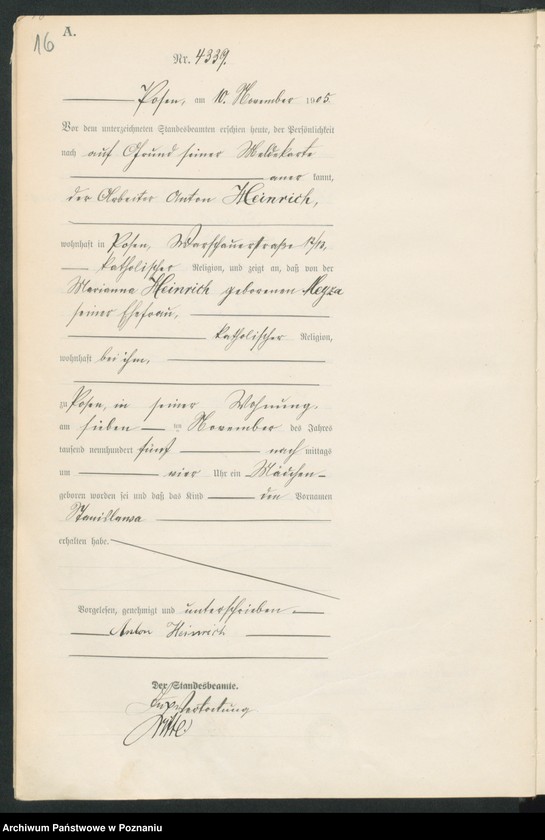 16
A.
Nr. 4339.
Posen, am 10. November 1905.
Vor dem unterzeichneten Standesbeamten erschien heute, der Persönlichkeit
nach auf Grund seiner Meldekarte
aner kannt,
der Arbeiter Anton Heinrich,
wohnhaft in Posen, Warschauerstraße
katholischer Religion, und zeigt an, daß von der
Marianna Heinrich geborenen
seiner Ehefrau,
katholischer Religion,
wohnhaft bei ihm,
zu Posen, in seiner Wohnung,
am sieben ten November des Jahres
tausend neunhundert fünf nach mittags
um vier Uhr ein Mädchen
geboren worden sei und daß das Kind den Vornamen
Stanislawa
erhalten habe.
Vorgelesen, genehmigt und unterschrieben
Anton Heinrich
Der Standesbeamte.
In Vertretung
Archiwum Państwowe w Poznaniu